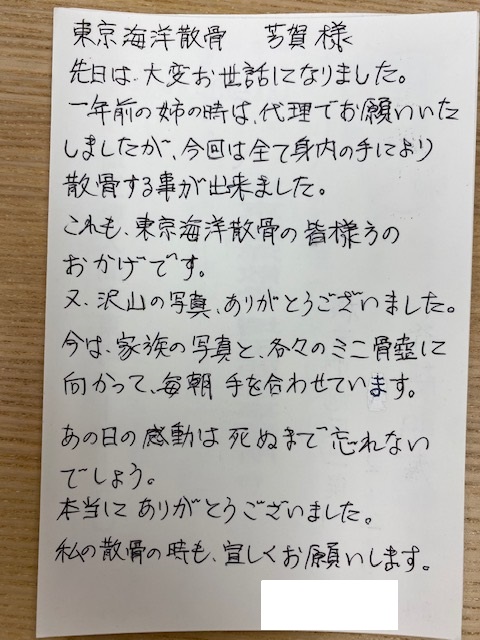 東京海洋散骨　芳賀様
先日は、大変お世話になりました。
一年前の姉の時は、代理でお願いいた
しましたが、今回は全て身内の手により
散骨する事が出来ました。
これも、東京海洋散骨の皆様方の
おかげです。
又、沢山の写真、ありがとうございました。
今は、家族の写真と、各々のミニ骨壺に
向かって、毎朝 手を合わせています。
あの日の感動は死ぬまで忘れない
でしょう。
本当に ありがとうございました。
私の散骨の時も、宜しくお願いします。